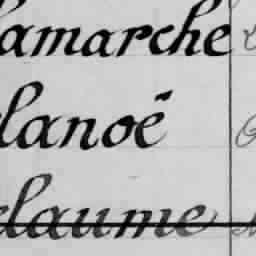 lamarche
lanoë
elaume